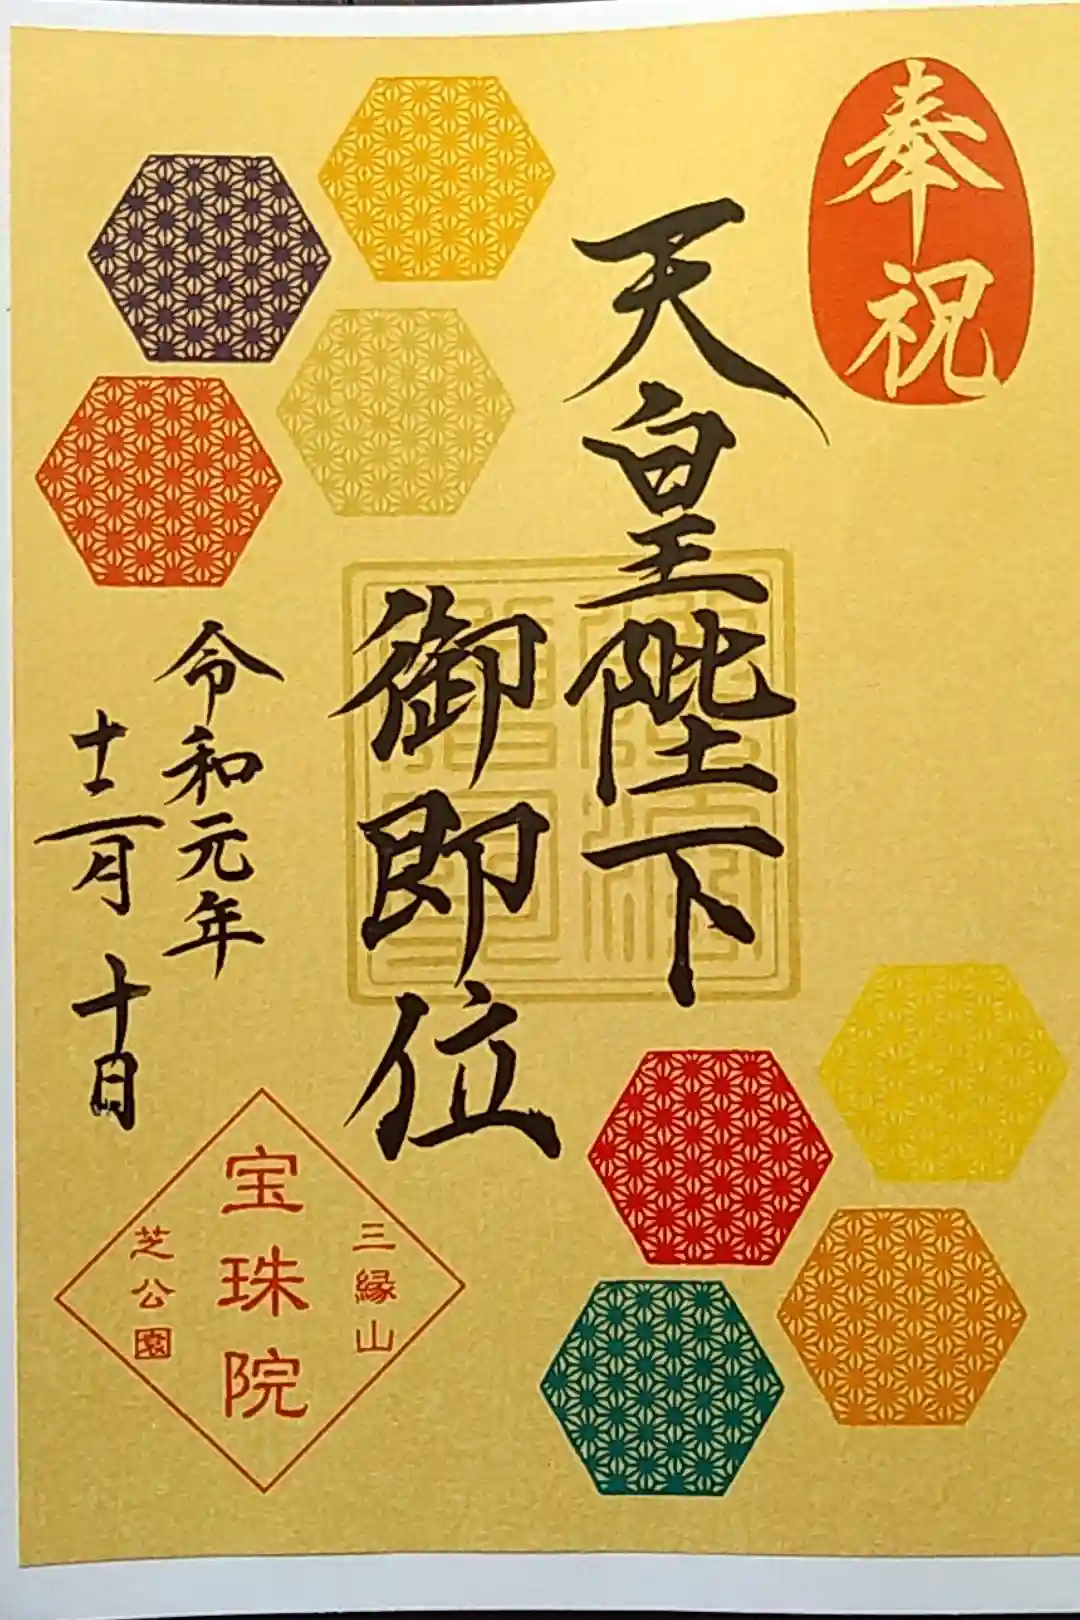 奉祝
天皇陛下
御即位
令和元年
十二月十日
三縁山
宝珠院
芝公園